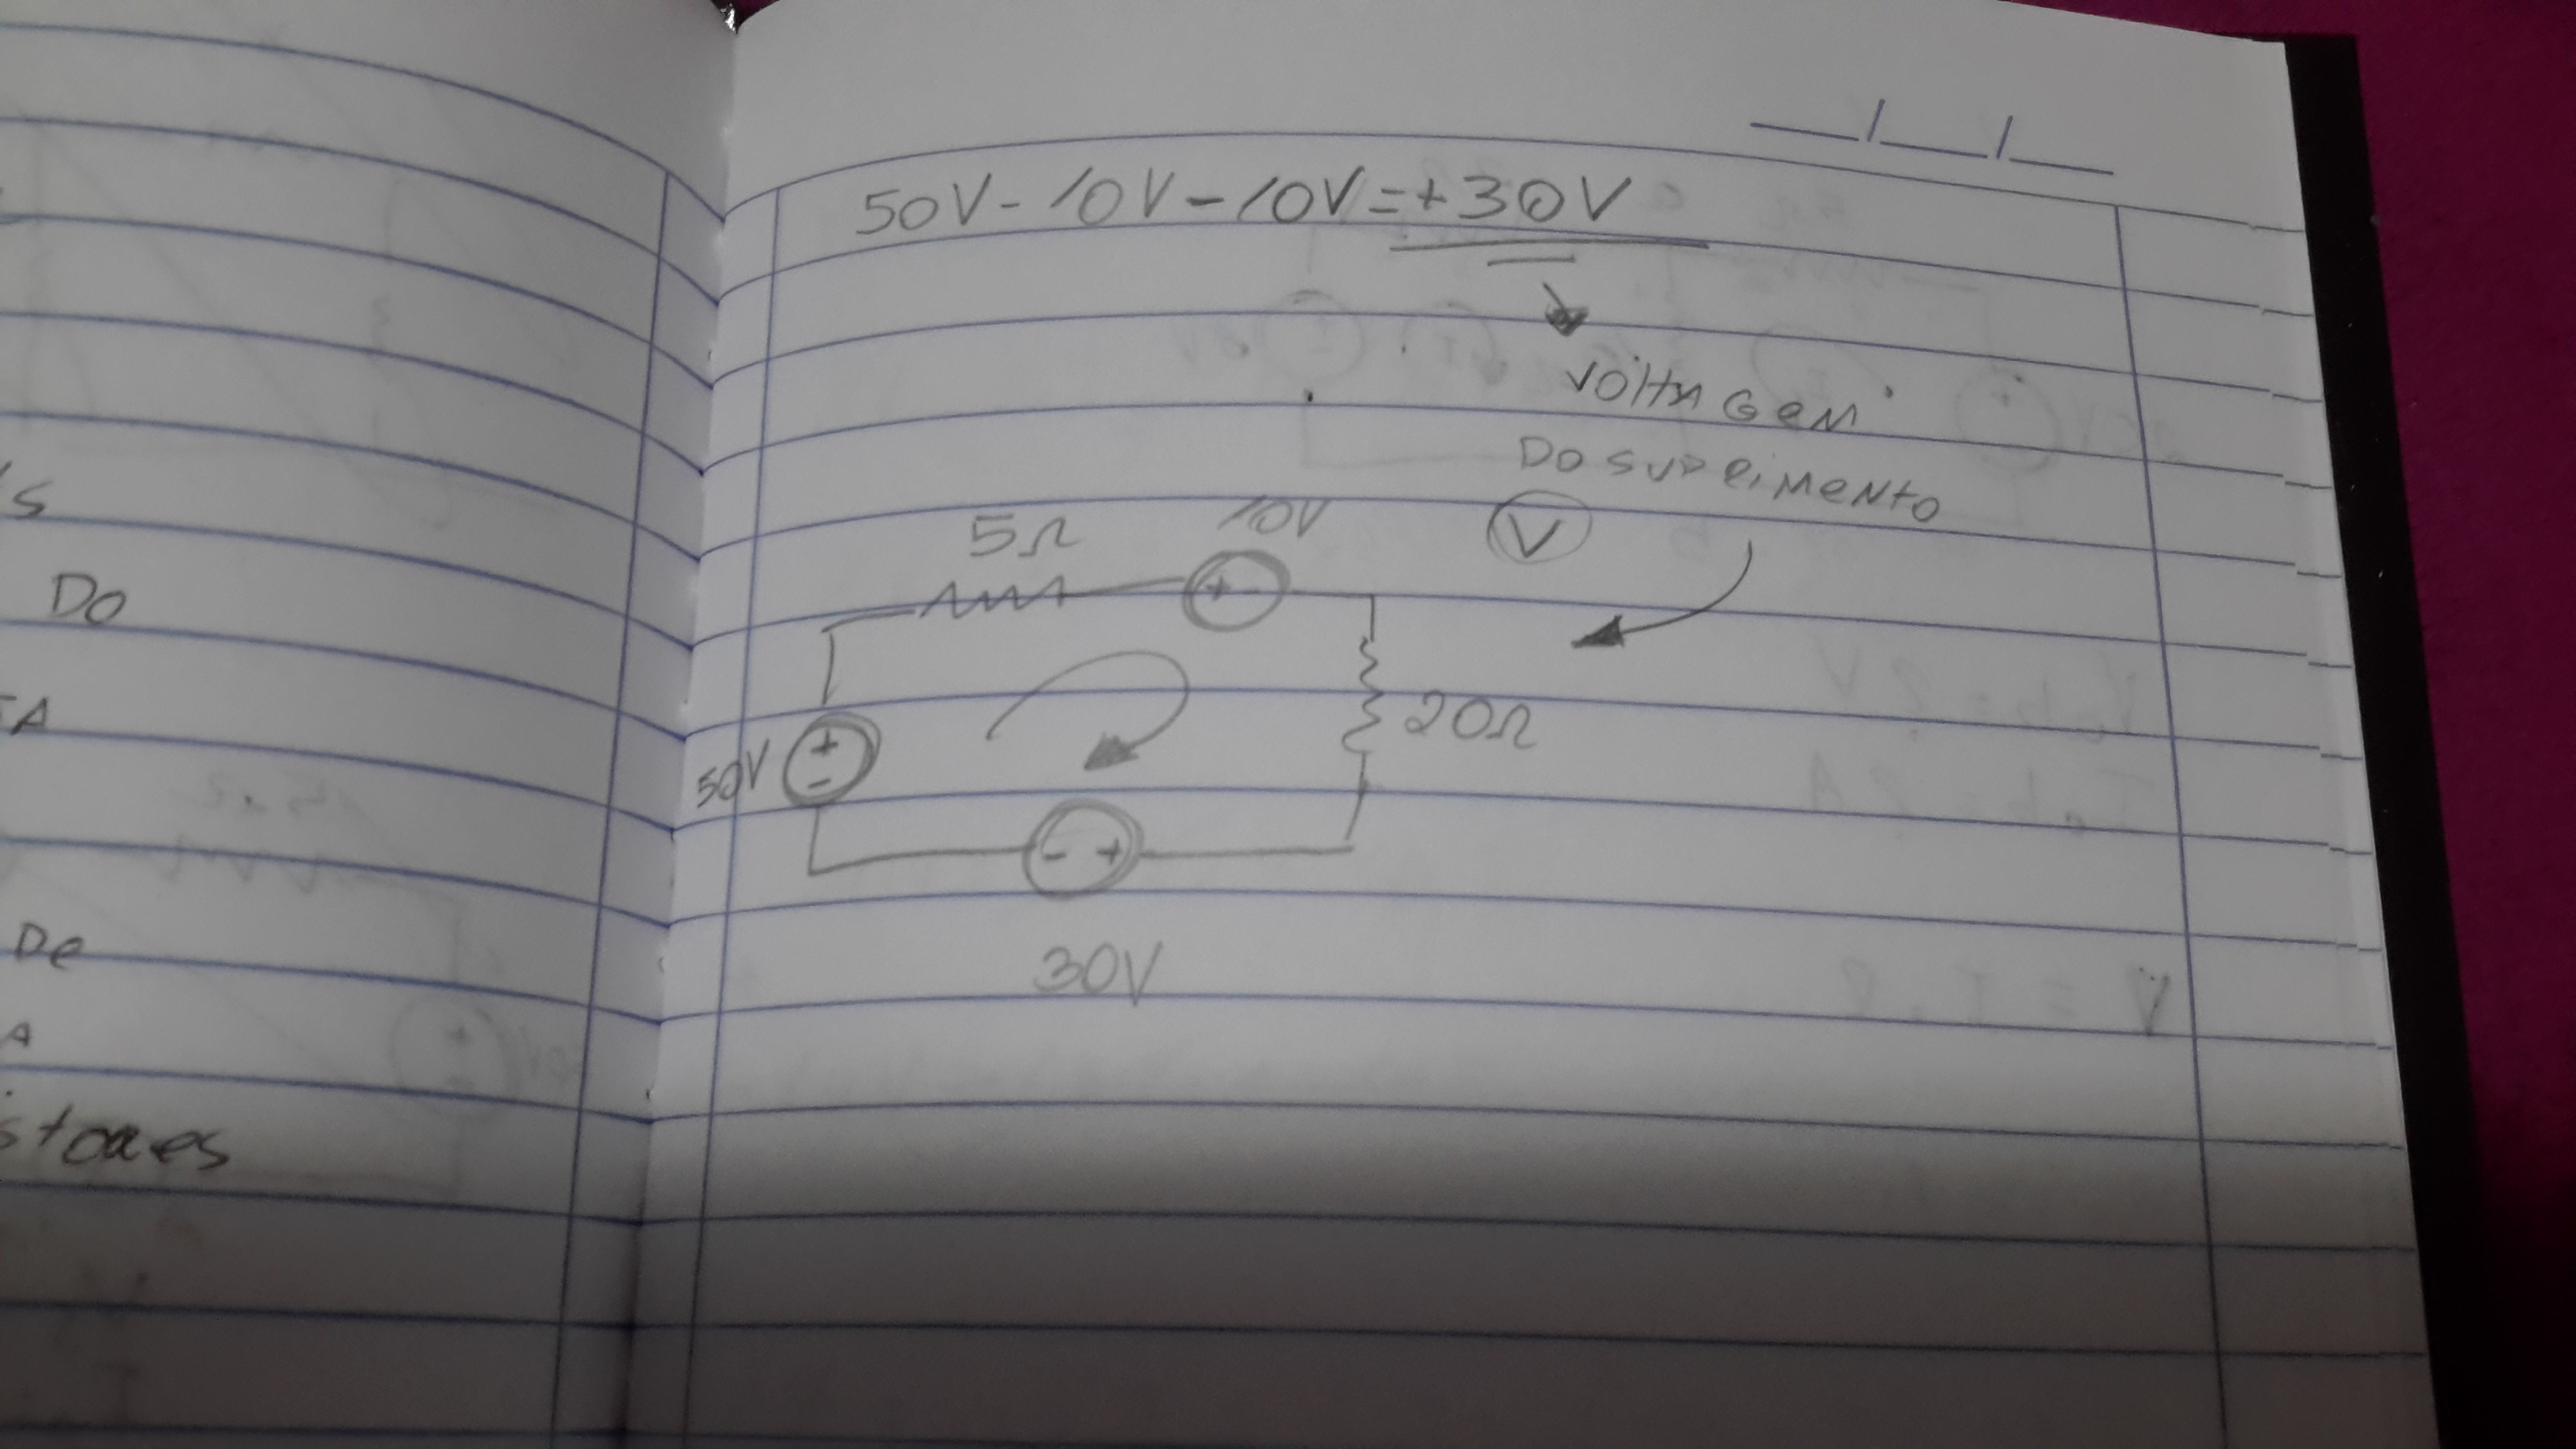 s
Do
TA
De
A
stores
__/__/__
50V - 10V - 10V = +30V
Voltagem
Do suprimento
V
5Ω
10V
+ -
20Ω
50V
+
-
- +
30V